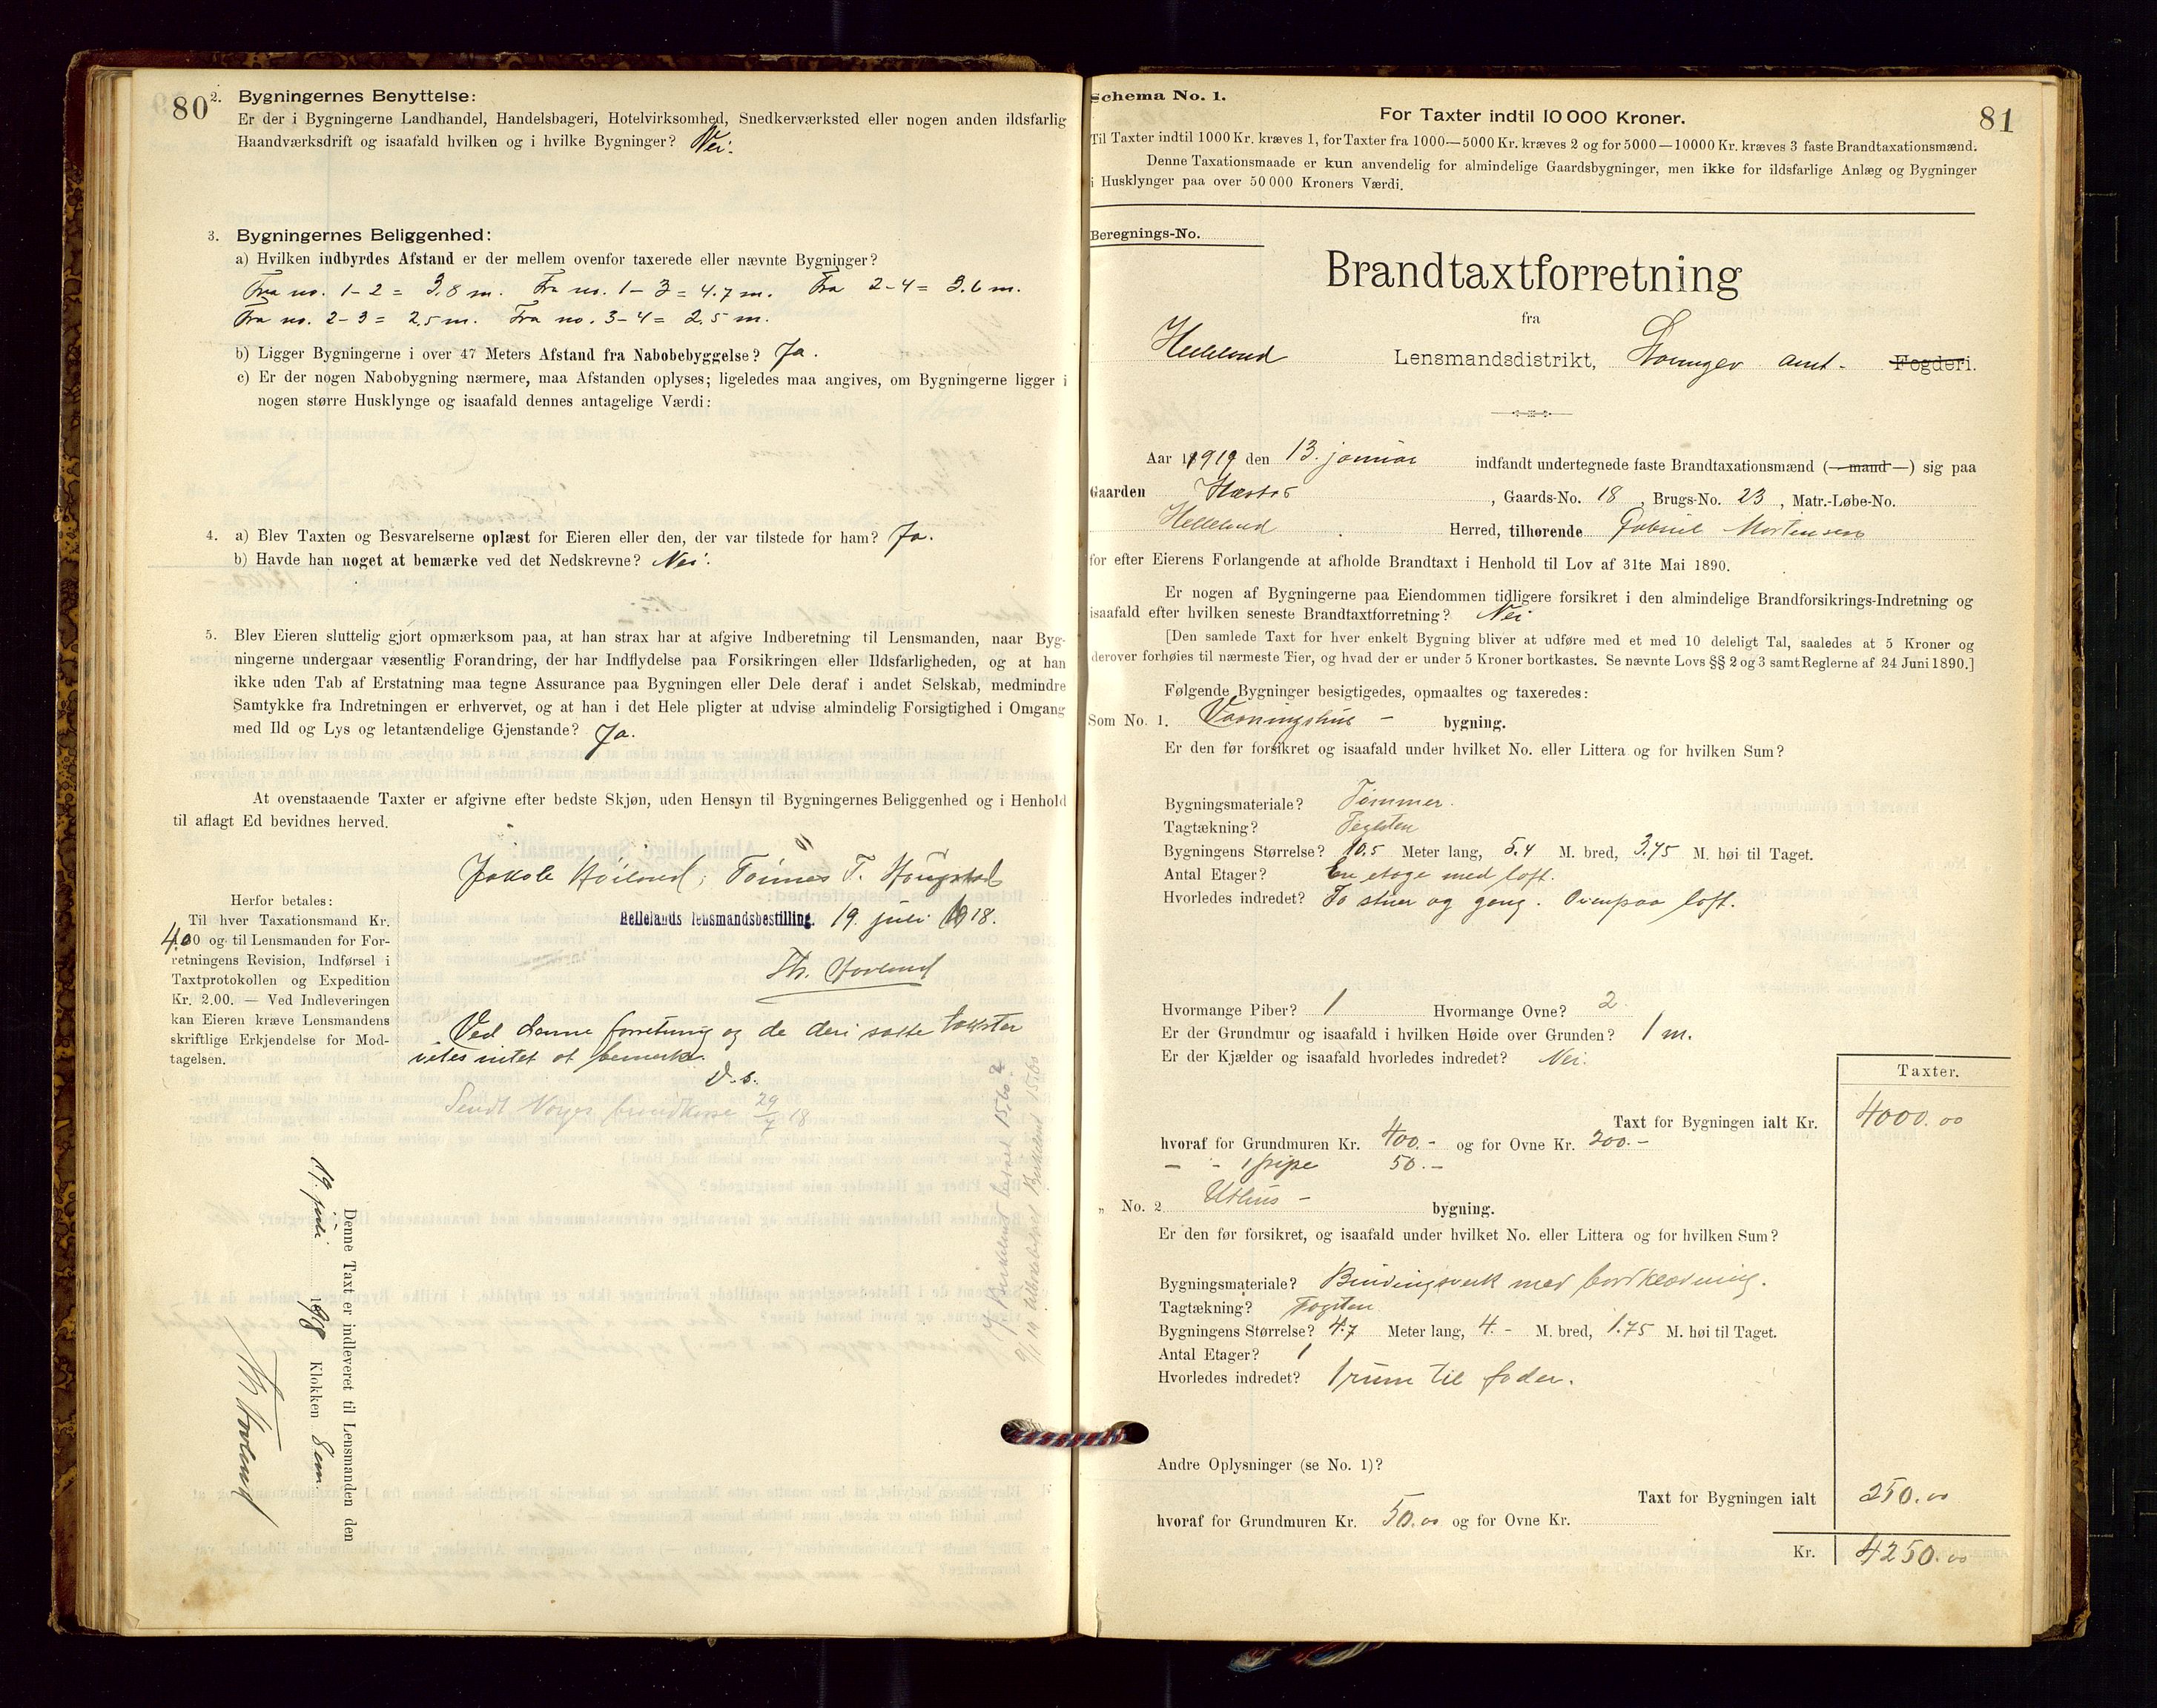 80
2. Bygningernes Benyttelse:
Er der i Bygningerne Landhandel, Handelsbageri, Hotelvirksomhed, Snedkerværksted eller nogen anden ildsfarlig
Haandværksdrift og isaafald hvilken og i hvilke Bygninger? Nei.
3. Bygningernes Beliggenhed:
a) Hvilken indbyrdes Afstand er der mellem ovenfor taxerede eller nævnte Bygninger?
Fra no. 1-2 = 3.8 m. Fra no. 1-3 = 4.7 m. Fra 2-4 = 3.6 m.
Fra no. 2-3 = 2,5 m. Fra no. 3-4 = 2.5 m.
b) Ligger Bygningerne i over 47 Meters Afstand fra Nabobebyggelse? Ja.
c) Er der nogen Nabobygning nærmere, maa Afstanden oplyses; ligeledes maa angives, om Bygningerne ligger i
nogen større Husklynge og isaafald dennes antagelige Værdi:
4. a) Blev Taxten og Besvarelserne oplæst for Eieren eller den, der var tilstede for ham? Ja.
b) Havde han noget at bemærke ved det Nedskrevne? Nei.
5. Blev Eieren sluttelig gjort opmærksom paa, at han strax har at afgive Indberetning til Lensmanden, naar Byg-
ningerne undergaar væsentlig Forandring, der har Indflydelse paa Forsikringen eller Ildsfarligheden, og at han
ikke uden Tab af Erstatning maa tegne Assurance paa Bygningen eller Dele deraf i andet Selskab, medmindre
Samtykke fra Indretningen er erhvervet, og at han i det Hele pligter at udvise almindelig Forsigtighed i Omgang
med Ild og Lys og letantændelige Gjenstande? Ja.
At ovenstaaende Taxter er afgivne efter bedste Skjøn, uden Hensyn til Bygningernes Beliggenhed og i Henhold
til aflagt Ed bevidnes herved.
Jakob Høiland, Tønnes T. Haugstad
Hellelands lensmandsbestilling. 19. juli 1918.
Th. Hovland
Herfor betales:
Til hver Taxationsmand Kr.
4.00 og til Lensmanden for For-
retningens Revision, Indførsel i
Taxtprotokollen og Expedition
Kr. 2.00. — Ved Indleveringen
kan Eieren kræve Lensmandens
skriftlige Erkjendelse for Mod-
tagelsen.
Ved denne forretning og de deri satte takster
vites intet at bemerke.
D. s.
Sendt Norges brandkasse 29/7 18
Denne Taxt er indleveret til Lensmanden den
19. juli 1918 Klokken 8 em.
Th Hovland
81
Schema No. 1.
For Taxter indtil 10 000 Kroner.
Til Taxter indtil 1000 Kr. kræves 1, for Taxter fra 1000—5000 Kr. kræves 2 og for 5000—10000 Kr. kræves 3 faste Brandtaxationsmænd.
Denne Taxationsmaade er kun anvendelig for almindelige Gaardsbygninger, men ikke for ildsfarlige Anlæg og Bygninger
i Husklynger paa over 50 000 Kroners Værdi.
Beregnings-No.
Brandtaxtforretning
fra
Helleland Lensmandsdistrikt, Stavanger amt. Fogderi.
Aar 1919 den 13. januar indfandt undertegnede faste Brandtaxationsmænd (— mand —) sig paa
Gaarden , Gaards-No. 18, Brugs-No. 23, Matr.-Løbe-No.
Helleland Herred, tilhørende Gabriel Mortensen
for efter Eierens Forlangende at afholde Brandtaxt i Henhold til Lov af 31te Mai 1890.
Er nogen af Bygningerne paa Eiendommen tidligere forsikret i den almindelige Brandforsikrings-Indretning og
isaafald efter hvilken seneste Brandtaxtforretning? Nei
[Den samlede Taxt for hver enkelt Bygning bliver at udføre med et med 10 deleligt Tal, saaledes at 5 Kroner og
derover forhøies til nærmeste Tier, og hvad der er under 5 Kroner bortkastes. Se nævnte Lovs §§ 2 og 3 samt Reglerne af 24 Juni 1890.]
Følgende Bygninger besigtigedes, opmaaltes og taxeredes:
Som No. 1. Vaaningshus - bygning.
Er den før forsikret og isaafald under hvilket No. eller Littera og for hvilken Sum?
Bygningsmateriale? Tømmer.
Tagtækning? Teglsten
Bygningens Størrelse? 10.5 Meter lang, 5.4 M. bred, 3.75 M. høi til Taget.
Antal Etager? En etage med loft.
Hvorledes indredet? To stuer og gang. Ovenpaa loft.
Hvormange Piber? 1 Hvormange Ovne? 2
Er der Grundmur og isaafald i hvilken Høide over Grunden? 1 m.
Er der Kjælder og isaafald hvorledes indredet? Nei.
Taxter.
Taxt for Bygningen ialt Kr. 4000.00
hvoraf for Grundmuren Kr. 400.- og for Ovne Kr. 200.-
— - 1 pipe 50.-
„ No. 2 Uthus - bygning.
Er den før forsikret, og isaafald under hvilket No. eller Littera og for hvilken Sum?
Bygningsmateriale? Bindingsverk med bordklædning.
Tagtækning?
Bygningens Størrelse? 4.7 Meter lang, 4.- M. bred, 1.75 M. høi til Taget.
Antal Etager? 1
Hvorledes indredet? 1 rum til foder.
Andre Oplysninger (se No. 1)?
Taxt for Bygningen ialt 250.00
hvoraf for Grundmuren Kr. 50.00 og for Ovne Kr.
Kr. 4250.00